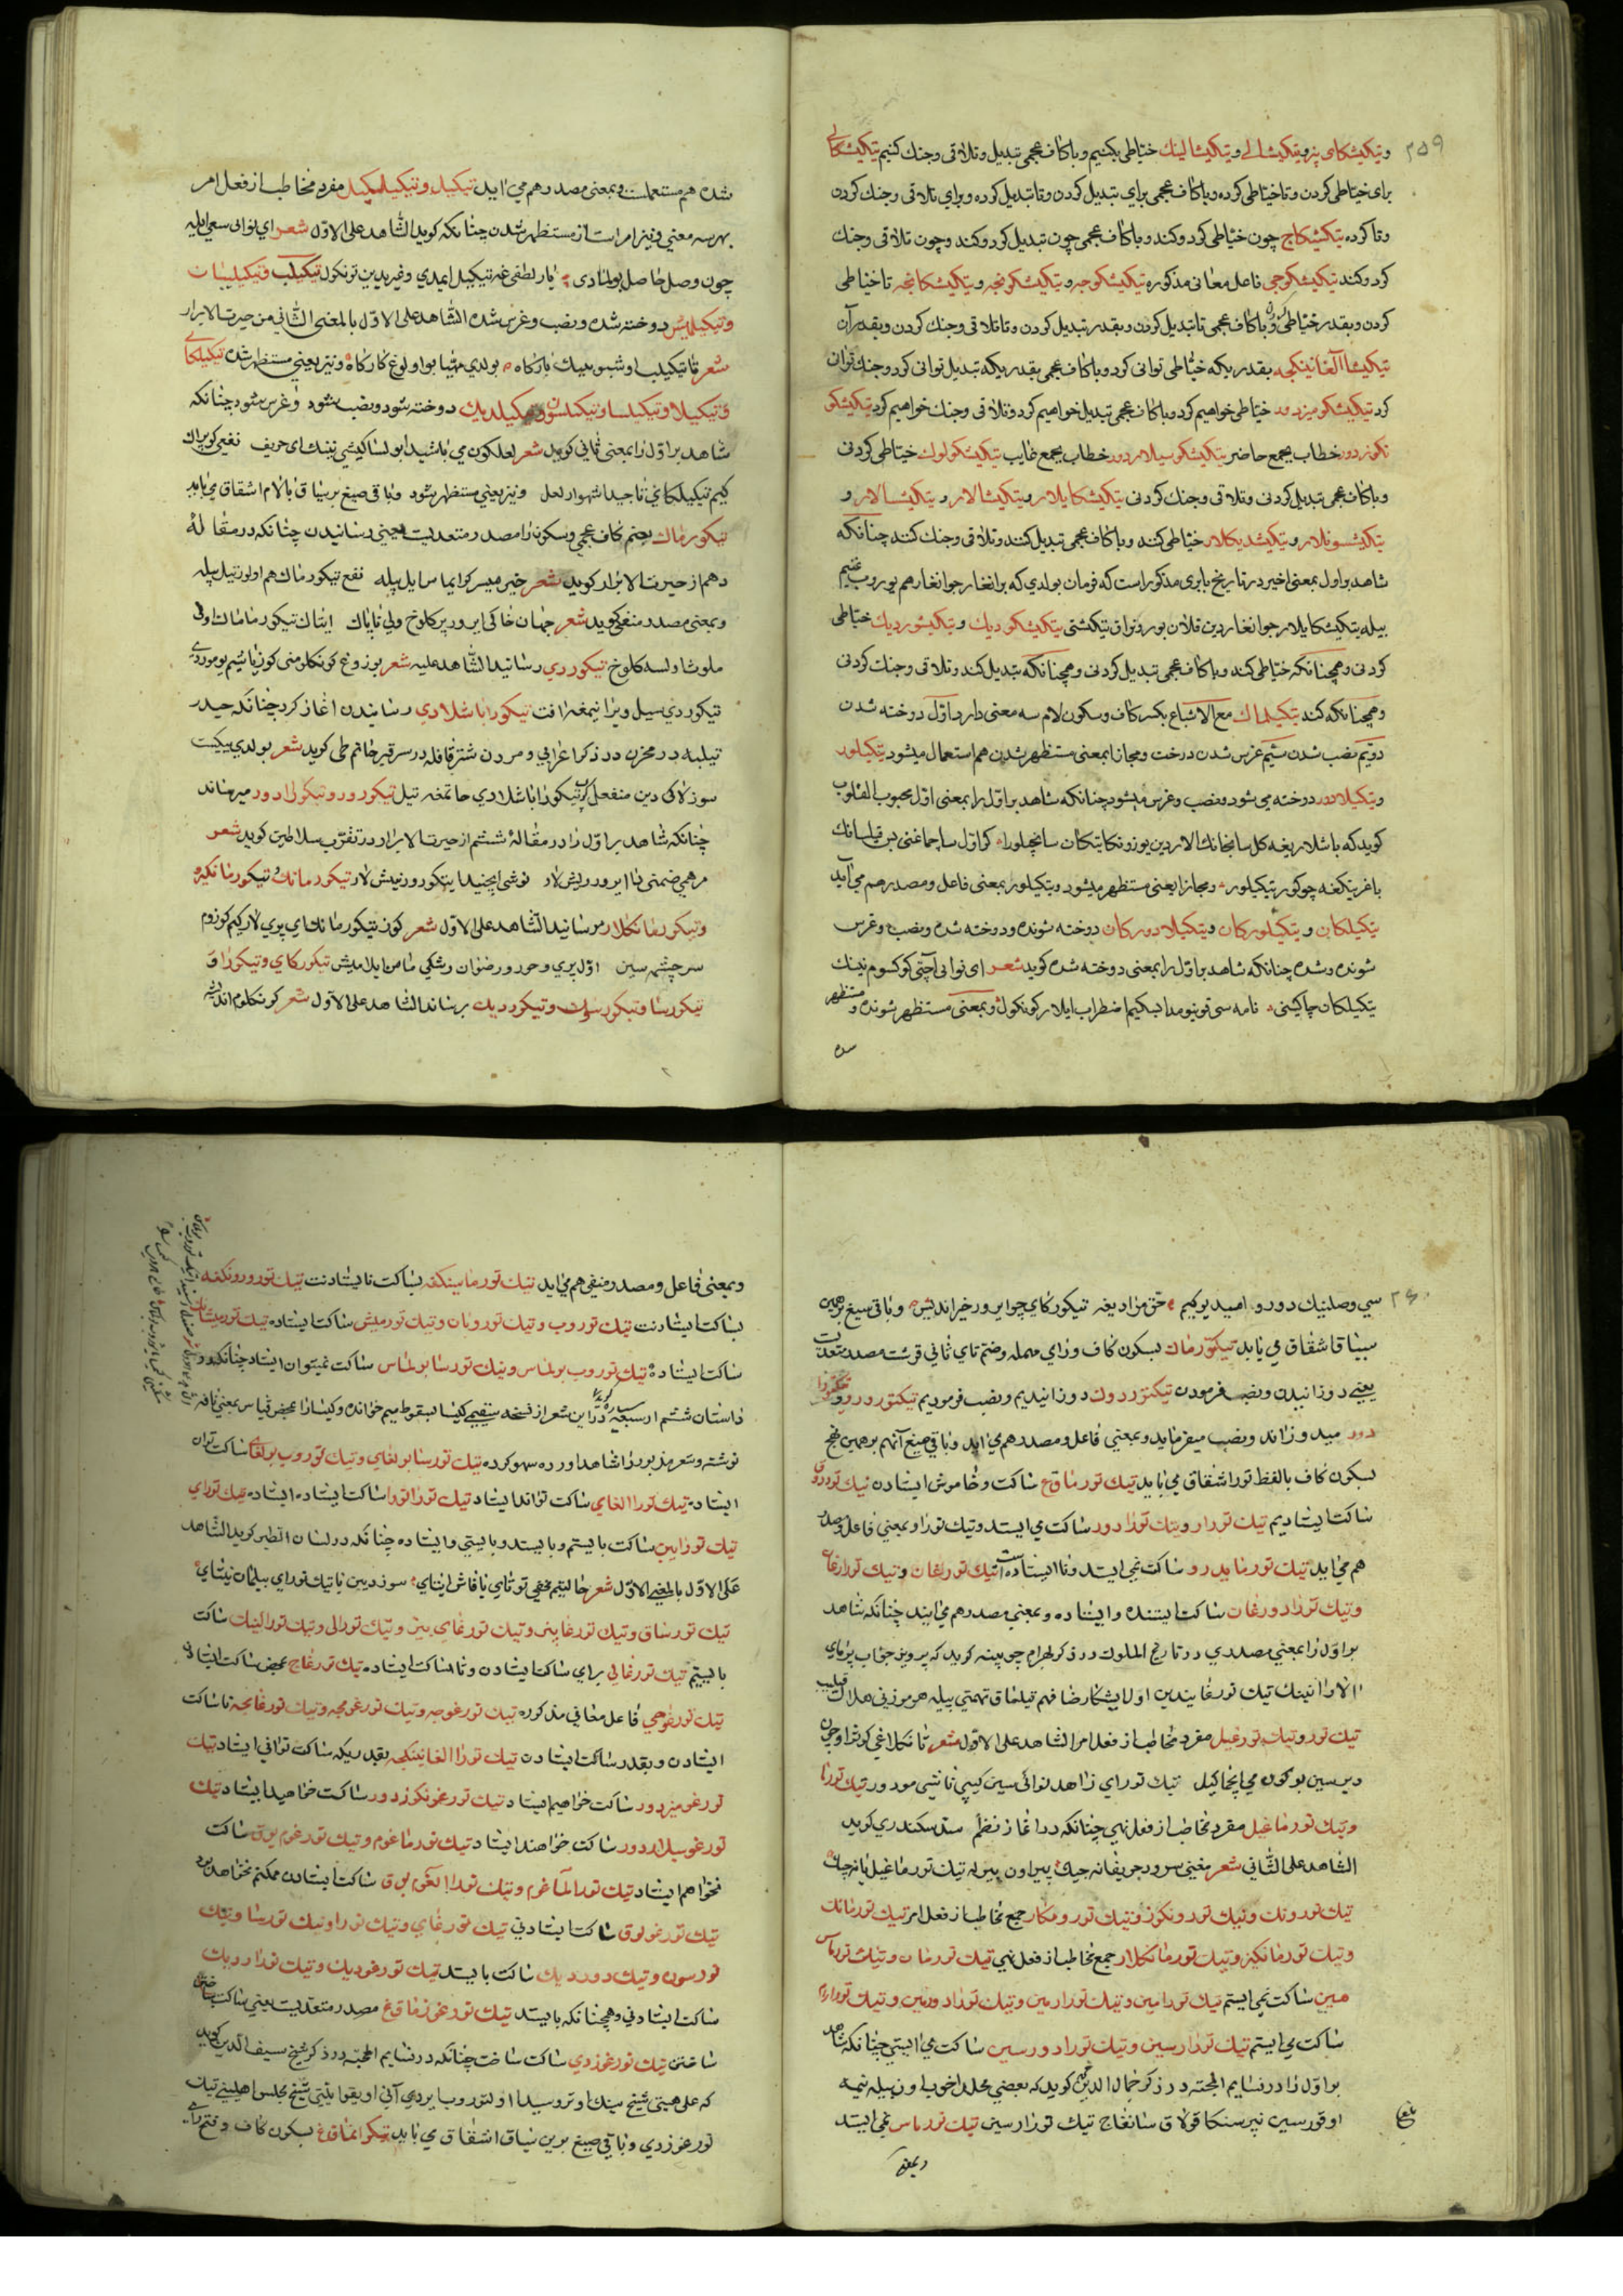 ۲۵۹
وتیکیشکای بیز وتیکیشالی وتیکیشالینك خیاطی بکنیم وباکاف عجمی تبدیل وتلاقی وجنك کنیم تیکیشکالی
برای خیاطی کردن وتاخیاطی کرده وباکاف عجمی برای تبدیل کردن وتاتبدیل کرده وبرای تلاقی وجنك کردن
وتاکرده تیکیشکاج چون خیاطی کرد وکند وباکاف عجمی چون تبدیل کرد وکند وچون تلاقی وجنك
کرد وکند تیکیشکوجی فاعل معانی مذکوره تیکیشکوجه وتیکیشکونجه وتیکیشکانجه تاخیاطی
کردن وبقدر خیاطی کردن وباکاف عجمی تاتبدیل کردن وبقدر تبدیل کردن وتاتلاقی وجنك کردن وبقدر آن
تیکیشا آلغانینکجه بقدریکه خیاطی توانی کرد وباکاف عجمی بقدریکه تبدیل توانی کرد وجنك توان
کرد تیکیشکومیز دور خیاطی خواهیم کرد وباکاف عجمی تبدیل خواهیم کرد وتلاقی وجنك خواهیم کرد تیکیشکو
نکوز دور خطاب بجمع حاضر تیکیشکوسیلار دور خطاب بجمع غایب تیکیشکولوك خیاطی کردنی
وباکاف عجمی تبدیل کردنی وتلاقی وجنك کردنی تیکیشکایلار وتیکیشالار وتیکیشسالار و
تیکیشسونلار وتیکیشدیکلار خیاطی کند وباکاف عجمی تبدیل کند وتلاقی وجنك کند چنانکه
شاهد براول بمعنی اخیر در تاریخ بابری مذکور است که فرمان بولدی که برانغار جوانغار هم یوروب غنیم
بیله تیکیشکایلار جوانغاردین قلان یورونوق تیکشتی تیکیشکودیك وتیکیشوردیك خیاطی
کردنی وهمچنانکه خیاطی کند وباکاف عجمی تبدیل کردنی وهمچنانکه تبدیل کند وتلاقی وجنك کردنی
وهمچنانکه کند تیکیلماك مع الاشباع بکسر کاف وسکون لام سه معنی دارد اول دوخته شدن
دویم نصب شدن سیم غرس شدن درخت ومجازا بمعنی مستظهر شدن هم استعمال میشود تیکیلور
وتیکیلادور دوخته می شود ونصب وغرس میشود چنانکه شاهد براول را بمعنی اول محبوب القلوب
کوید که باشلاریغه کل سانجانك الاردین یوزونکا تیکان سانچیلورا کر اول ساچماغنی دین قیلسانك
باغرینکغه چوکور تیکیلور ومجازا بمعنی مستظهر میشود وتیکیلور بمعنی فاعل ومصدر هم می آید
تیکیلکان وتیکیلورکان وتیکیلادورکان دوخته شونده ودوخته شده ونصب وغرس
شونده وشده چنانکه شاهد براول را بمعنی دوخته شده کوید شعر ای نوائی آچتی کوکسوم نینك
تیکیلکان چاکینی نامه سی قوینومدا ایسکیم اضطراب ایلار کونکول وبمعنی مستظهر شونده ومستظهر
شده
شده هم مستعملست وبمعنی مصدر هم می اید تیکیل وتیکیلیکیل مفرد مخاطب از فعل امر
بهر سه معنی ونیز امر است از مستظهر شدن چنانکه کوید الشاهد علی الاول شعر ای نوائی سعی ایله
چون وصل حاصل بولمادی یار لطفی غه تیکیل ایمدی وغیریدین تونکول تیکیلیب وتیکیلیبان
وتیکیلمیش دوخته شده ونصب وغرس شده الشاهد علی الاول بالمعنی الثانی من حیرت الابرار
شعر قا تیکیلیب اوشبو بییك بارکاه بولدی مهیا بو اولوغ کارکاه ونیز یعنی مستظهر شده تیکیلکای
وتیکیلا وتیکیلسا وتیکیلسون وتیکیلدیك دوخته شود ونصب شود وغرس شود چنانکه
شاهد براول را بمعنی ثانی کوید شعر لعلکون می باشیدا بولسا کیشی نینك ای حریف نغیر کویراك
کیم تیکیلکای تاجیدا شهوار لعل ونیز یعنی مستظهر شود وباقی صیغ برسیاق بالام اشقاق می یابد
تیکورماك بضم کاف عجمی وسکون را مصدر متعدیست یعنی رسانیدن چنانکه در مقالهٔ
دهم از حیرت الابرار کوید شعر خیر میسر کر ایماس ایل بیله نفع تیکورماك هم اولور تیل بیله
وبمعنی مصدر منفی کوید شعر جهان خاکی ایرور بیر کلوخ ولی ناپاك ایتاك تیکورمامك اولی
ملوث اولسه کلوخ تیکوردی رسانید الشاهد علیه شعر بوزوغ کونکلومنی کوز یاشیم یوموردی
تیکوردی سیل ویرانیمغه افت تیکورا باشلادی رسانیدن اغاز کرد چنانکه حیدر
تیلبه در مخزن در ذکر اعرابی ومردن شتر قافله در سر قبر حاتم طی کوید شعر بولدی بیکت
سوز لاکی دین منفعل کوپ تیکورا باشلادی حاتمغه تیل تیکورور وتیکورادور میرساند
چنانکه شاهد براول را در مقالهٔ ششم از حیرت الابرار در تقرب سلاطین کوید شعر
مرهمی ضمنی ناایرور ریش لار نوشی ایچیندا تیکورور نیش لار تیکورمانك وتیکورمانکیز
وتیکورمانکلار مرسانید الشاهد علی الاول شعر کوز تیکورمانك ای پری لار کیم کوزوم
سرچشمه سین اول پری وحور ورضوان رشکی مامن ایلامیش تیکورکای وتیکورا و
تیکورسا وتیکورسون وتیکوردیك برساند الشاهد علی الاول شعر کونکلوم اندیشه
۲۶۰
سی وصلنیك دورور امید یوکیم حق مرادیغه تیکورکای چو ایرور خیر اندیش وباقی صیغ برهمین
سیاق اشقاق می یابد تیکتورماك بسکون کاف ورای مهمله وضم تای ثانی قرشت مصدر متعدیست
یعنی دوزانیدن ونصب فرمودن تیکتوردوك دوزانیدیم ونصب فرمودیم تیکتورور وتیکتورا
دور میدوزاند ونصب میفرماید وبمعنی فاعل ومصدر هم می اید وباقی صیغ آنهم برهمین نهج
بسکون کاف بالفظ تور اشقاق می یابد تیك تورماق ساکت وخاموش ایستادن تیك توردوق
ساکت ایستادیم تیك تورار وتیك تورادور ساکت می ایستد وتیك تورا وبمعنی فاعل ومصدر
هم می اید تیك تورمایدرور ساکت نمی ایستد ونا ایستاده است تیك تورغان وتیك تورارغان
وتیك تورادورغان ساکت ایستنده وایستاده وبمعنی مصدر هم می ایند چنانکه شاهد
براول را بمعنی مصدری در تاریخ الملوك در ذکر بهرام چوپینه کوید که پرویز جواب برمای
الار انینك تیك تورغانیدین اولایشکا رضا فهم قیلماق تهمتی بیله هرمزنی هلاك قیلیب
تیك تور وتیك تورغیل مفرد مخاطب از فعل امر الشاهد علی الاول شعر تا نکلاغی کوثر اوچون
دیرسین بو کون می ایچماکیل تیك تور ای زاهد نوائی سین کیبی ناشی مودور تیك تورما
وتیك تورماغیل مفرد مخاطب از فعل نهی چنانکه در اغاز نظم سد سکندری کوید
الشاهد علی الثانی شعر مغنی سرود حریفانه چیك بیراون بیرله تیك تورماغیل یانه چیك
تیك تورونك وتیك تورونکوز وتیك تورونکلار جمع مخاطب از فعل امر تیك تورمانك
وتیك تورمانکیز وتیك تورمانکلار جمع مخاطب از فعل نهی تیك تورمان وتیك تورماس
مین ساکت نمی ایستم تیك تورامین وتیك تورارمین وتیك تورادورمین وتیك تورارام
ساکت می ایستم تیك تورارسین وتیك تورادورسین ساکت می ایستی چنانکه شاهد
براول را در نسایم المحبة در ذکر جمال الدین کوید که بعضی محلدا خوب اون بیله نیمه
اوقورسین نیرسنکا قولاق سالغاج تیك تورارسین تیك تورماس نمی ایستد
بلغ
وبمعنی
وبمعنی فاعل ومصدر منفی هم می اید تیك تورماسینکغه بساکت نایستادنت تیك تورورونکغه
بساکت ایستادنت تیك توروب وتیك توروبان وتیك تورمیش ساکت ایستاده تیك تورمیشان
ساکت ایستاده تیك توروب بولماس وتیك تورسا بولماس ساکت نمیتوان ایستاد چنانکه در
داستان ششم از سبعه سیاره کوید در این شعر از نسخه سقیمی کیسا بسقوط میم خوانده وکیسا را محض قیاس بمعنی نافه
نوشته وشعر مذبور را شاهد اورده سهو کرده تیك تورسا بولغای وتیك توروب بولغای ساکت توان
ایستاد تیك تورا الغای ساکت تواند ایستاد تیك تورا تورا ساکت ایستاده ایستاده تیك تورای
تیك تورایین ساکت بایستم وبایستد وبایستی وایستاده چنانکه در لسان الطیر کوید الشاهد
علی الاول بالمعنی الاول شعر حالیتیم مخفی توتای یا فاش ایتای سوزدین یا تیك تورای بیلمان نیتای
تیك تورساق وتیك تورغابیز وتیك تورغای بیز وتیك تورالی وتیك تورالینك ساکت
بایستیم تیك تورغالی برای ساکت ایستادن وتا ساکت ایستاده تیك تورغاج بمحض ساکت ایستادن
تیك تورغوچی فاعل معانی مذکوره تیك تورغوچه وتیك تورغونچه وتیك تورغانچه تا ساکت
ایستادن وبقدر ساکت ایستادن تیك تورا الغانینکجه بقدریکه ساکت توانی ایستاد تیك
تورغومیز دور ساکت خواهیم ایستاد تیك تورغونکوز دور ساکت خواهید ایستاد تیك
تورغوسیلار دور ساکت خواهند ایستاد تیك تورماغوم وتیك تورغوم یوق ساکت
نخواهم ایستاد تیك تورا الماغوم وتیك تورا الغوم یوق ساکت ایستادن ممکنم نخواهد بود
تیك تورغولوق ساکت ایستادنی تیك تورغای وتیك تورا وتیك تورسا وتیك
تورسون وتیك دوردیك ساکت بایستد تیك تورغودیك وتیك توراردیك
ساکت ایستادنی وهمچنانکه بایستد تیك تورغوزماق مصدر متعدیست یعنی ساکت ساختن
ساختن تیك تورغوزدی ساکت ساخت چنانکه در نسایم المحبة در ذکر شیخ سیف الدین کوید
که علی هیتی شیخ نینك اوتروسیدا اولتوروب ایردی آنی اویقو ایلتی شیخ مجلس اهلینی تیك
تورغوزدی وباقی صیغ برین سیاق اشقاق می یابد تیکرانماق بسکون کاف وفتح رای